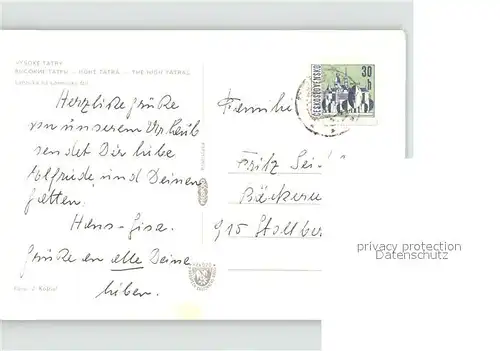 VYSOKÉ TATRY
ВЫСОКИЕ ТАТРЫ - HOHE TATRA - THE HIGH TATRAS
Herzliche Grüße
von unserem Urlaub
sendet Dir liebe
Elfriede und Deinen
Gatten
Hans-Gisa.
Grüße an alle Deine
lieben.
Foto: J.
ČESKOSLOVENSKO
30 h
Familie
Fritz
Bäckerei
915
privacy protection
Datenschutz